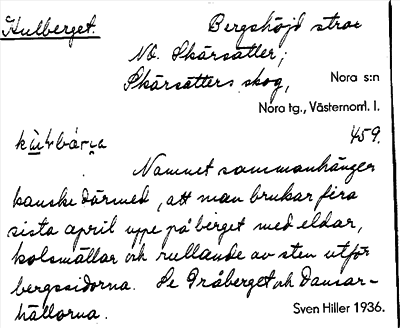 Kulberget. Bergshöjd strax
NO. Skärsätter;
Skärsätters skog, Nora s:n
Nora tg., Västernorrl. l.
459.
Namnet sammanhänger
kanske därmed, att man brukar fira
sista april uppe på berget med eldar,
kolsmällar och rullande av sten utför
bergssidorna. Se Gråberget och Dansar-
hällorna. Sven Hiller 1936.